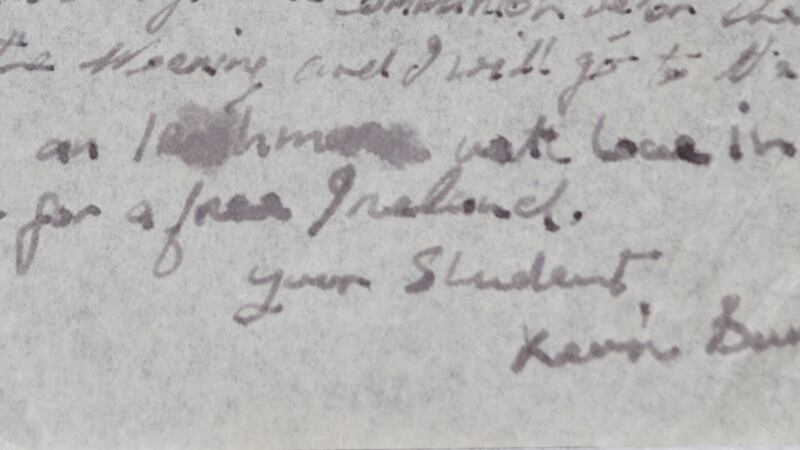 Communion
the morning and I will go to the
an Irishman with love in
for a free Ireland.
your Student,
Kevin